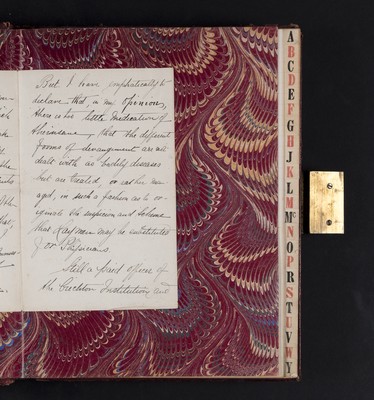 But I have emphatically to
declare that, in my opinion,
there is too little Medication of
the insane, that the different
forms of derangement are not
dealt with as bodily diseases
but are treated, or rather man
aged, in such a fashion as to or
iginate the suspicion and scheme
that Laymen may be substituted
for Physicians.
Still a paid officer of
the Crichton Institution, and
A
B
C
D
E
F
G
H
J
K
L
M
Mc
N
O
P
R
S
T
U
V
W
Y